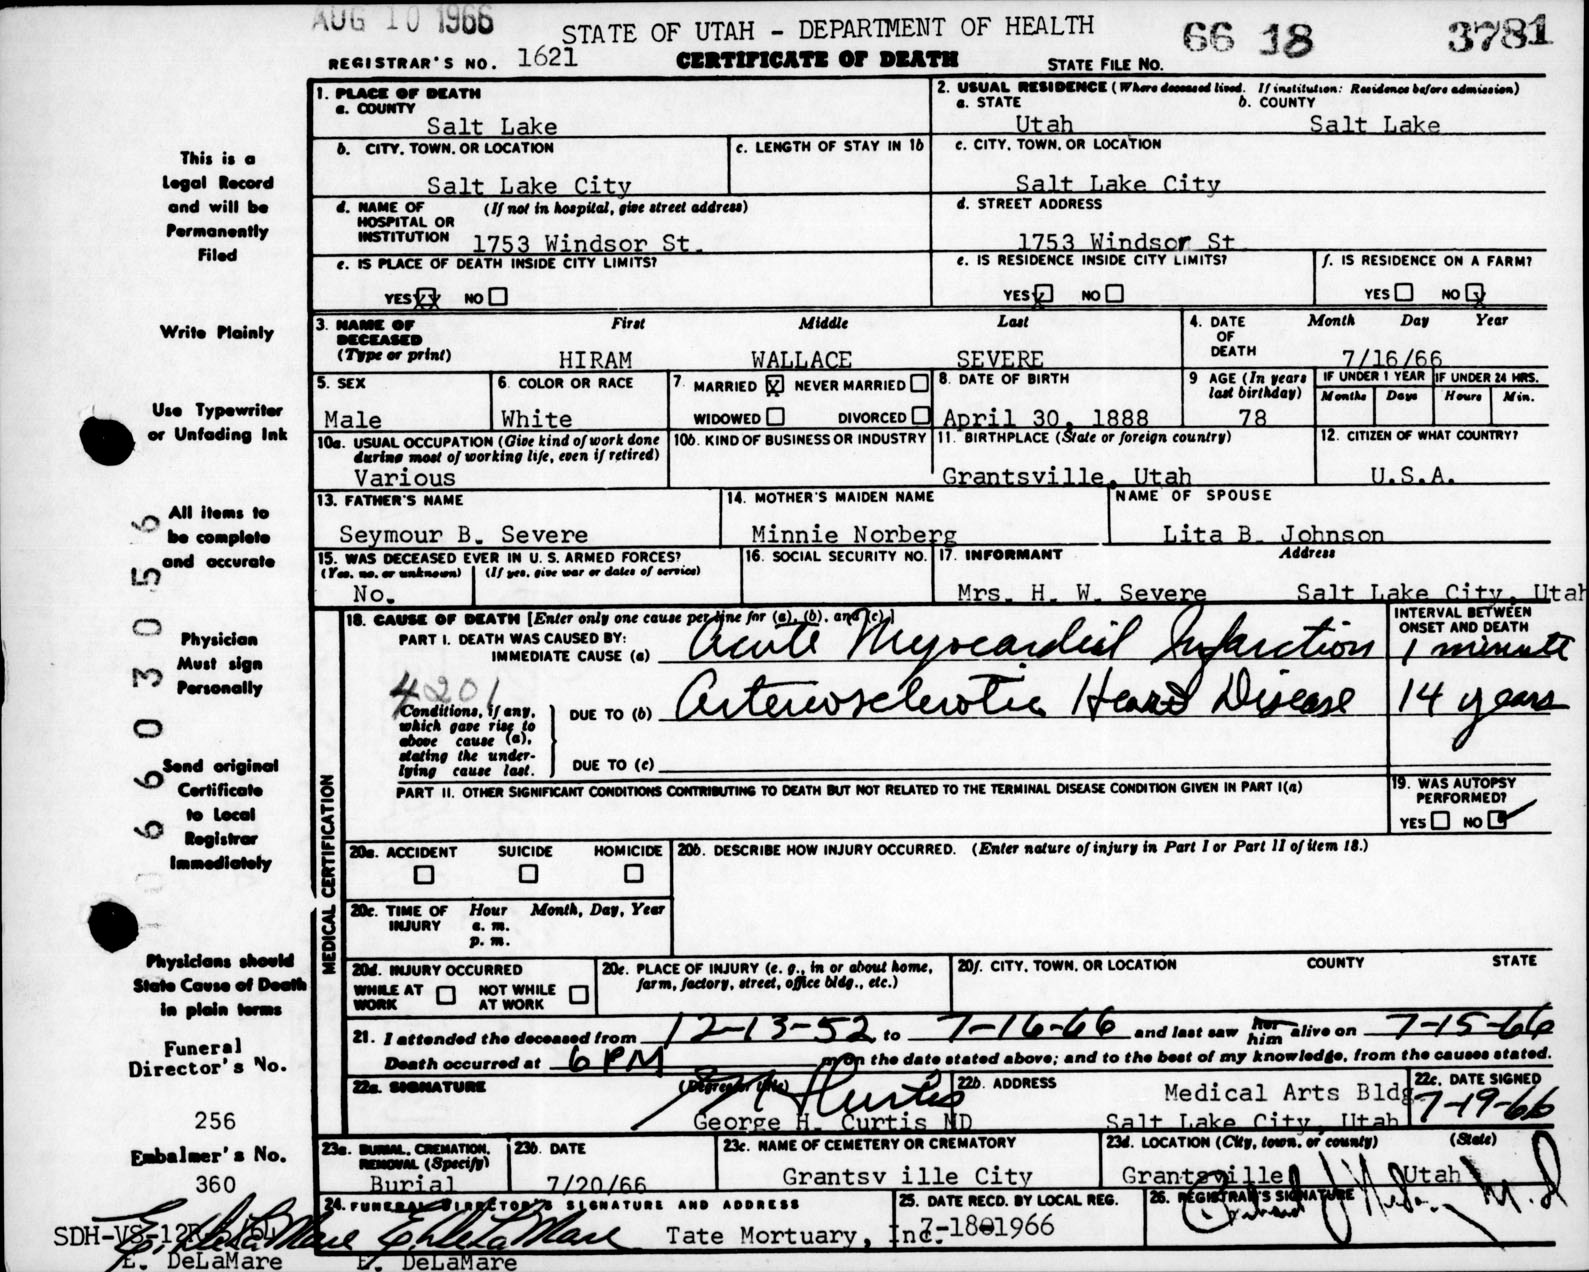 AUG 10 1966
STATE OF UTAH - DEPARTMENT OF HEALTH
66 18 3781
REGISTRAR'S NO. 1621
CERTIFICATE OF DEATH
STATE FILE NO.
1. PLACE OF DEATH
a. COUNTY
Salt Lake
2. USUAL RESIDENCE (Where deceased lived. If institution: Residence before admission)
a. STATE
Utah
b. COUNTY
Salt Lake
b. CITY, TOWN, OR LOCATION
Salt Lake City
c. LENGTH OF STAY IN 1b
c. CITY, TOWN, OR LOCATION
Salt Lake City
d. NAME OF HOSPITAL OR INSTITUTION
(If not in hospital, give street address)
1753 Windsor St.
d. STREET ADDRESS
1753 Windsor St
e. IS PLACE OF DEATH INSIDE CITY LIMITS?
YES XX NO
e. IS RESIDENCE INSIDE CITY LIMITS?
YES X NO
f. IS RESIDENCE ON A FARM?
YES NO X
3. NAME OF DECEASED
(Type or print)
First Middle Last
HIRAM WALLACE SEVERE
4. DATE OF DEATH
Month Day Year
7/16/66
5. SEX
Male
6. COLOR OR RACE
White
7. MARRIED X NEVER MARRIED
WIDOWED DIVORCED
8. DATE OF BIRTH
April 30, 1888
9 AGE (In years last birthday)
78
IF UNDER 1 YEAR
Months Days
IF UNDER 24 HRS.
Hours Min.
10a. USUAL OCCUPATION (Give kind of work done during most of working life, even if retired)
Various
10b. KIND OF BUSINESS OR INDUSTRY
11. BIRTHPLACE (State or foreign country)
Grantsville, Utah
12. CITIZEN OF WHAT COUNTRY?
U.S.A.
13. FATHER'S NAME
Seymour B. Severe
14. MOTHER'S MAIDEN NAME
Minnie Norberg
NAME OF SPOUSE
Lita B. Johnson
15. WAS DECEASED EVER IN U. S. ARMED FORCES?
(Yes, no, or unknown) (If yes, give war or dates of service)
No.
16. SOCIAL SECURITY NO.
17. INFORMANT Address
Mrs. H. W. Severe Salt Lake City, Utah
MEDICAL CERTIFICATION
18. CAUSE OF DEATH [Enter only one cause per line for (a), (b), and (c).]
PART I. DEATH WAS CAUSED BY:
IMMEDIATE CAUSE (a) Acute Myocardial Infarction
INTERVAL BETWEEN ONSET AND DEATH
1 minute
4201
Conditions, if any, which gave rise to above cause (a), stating the underlying cause last.
DUE TO (b) Arteriosclerotic Heart Disease
14 years
DUE TO (c)
PART II. OTHER SIGNIFICANT CONDITIONS CONTRIBUTING TO DEATH BUT NOT RELATED TO THE TERMINAL DISEASE CONDITION GIVEN IN PART I(a)
19. WAS AUTOPSY PERFORMED?
YES NO
20a. ACCIDENT SUICIDE HOMICIDE
20b. DESCRIBE HOW INJURY OCCURRED. (Enter nature of injury in Part I or Part II of item 18.)
20c. TIME OF INJURY
Hour Month, Day, Year
a. m.
p. m.
20d. INJURY OCCURRED
WHILE AT WORK
NOT WHILE AT WORK
20e. PLACE OF INJURY (e. g., in or about home, farm, factory, street, office bldg., etc.)
20f. CITY, TOWN, OR LOCATION COUNTY STATE
21. I attended the deceased from 12-13-52, to 7-16-66 and last saw her him alive on 7-15-66
Death occurred at 6 PM m on the date stated above; and to the best of my knowledge, from the causes stated.
22a. SIGNATURE (Degree or title)
George H. Curtis MD
22b. ADDRESS
Medical Arts Bldg
Salt Lake City, Utah
22c. DATE SIGNED
7-19-66
23a. BURIAL, CREMATION, REMOVAL (Specify)
Burial
23b. DATE
7/20/66
23c. NAME OF CEMETERY OR CREMATORY
Grantsv ille City
23d. LOCATION (City, town, or county) (State)
Grantsville Utah
24. FUNERAL DIRECTOR'S SIGNATURE AND ADDRESS
E. DeLaMare E. DeLaMare
Tate Mortuary, Inc.
25. DATE RECD. BY LOCAL REG.
7-18-1966
26. REGISTRAR'S SIGNATURE
M.D
SDH-VS-12
E. DeLaMare E. DeLaMare
This is a
Legal Record
and will be
Permanently
Filed
Write Plainly
Use Typewriter
or Unfading Ink
All items to
be complete
and accurate
Physician
Must sign
Personally
Send original
Certificate
to Local
Registrar
Immediately
Physicians should
State Cause of Death
in plain terms
Funeral
Director's No.
256
Embalmer's No.
360